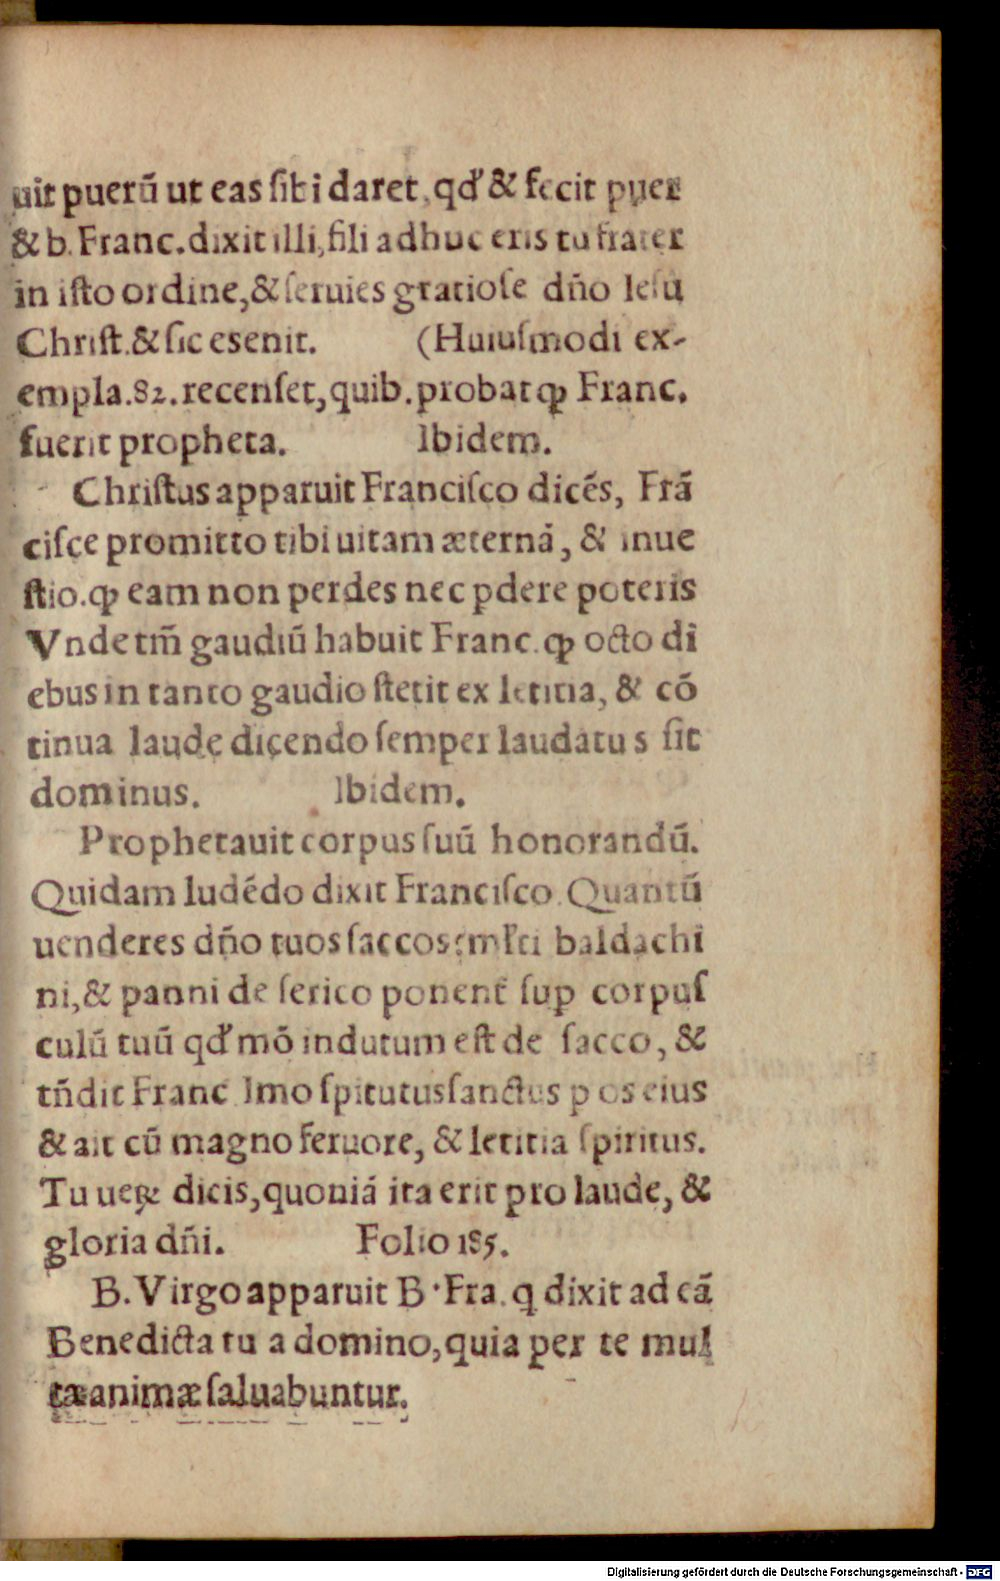 uit puerũ ut eas sibi daret, qđ & fecit puer
& b. Franc. dixit illi, fili adhuc eris tu frater
in isto ordine, & seruies gratiose dño Iesu
Christ. & sic esenit. (Huiusmodi ex-
empla. 82. recenset, quib. probat ꝙ Franc.
fuerit propheta. Ibidem.
Christus apparuit Francisco dicẽs, Frã
cisce promitto tibi uitam æternã, & inue
stio. ꝙ eam non perdes nec ꝑdere poteris
Vnde tm̃ gaudiũ habuit Franc. ꝙ octo di
ebus in tanto gaudio stetit ex letitia, & cõ
tinua laude dicendo semper laudatus sit
dominus. Ibidem.
Prophetauit corpus suũ honorandũ.
Quidam ludẽdo dixit Francisco. Quantũ
uenderes dño tuos saccos: ml'ti baldachi
ni, & panni de serico ponent̃ suꝑ corpus
culũ tuũ qđ mõ indutum est de sacco, &
tñdit Franc Imo spitutus sanctus p os eius
& ait cũ magno feruore, & letitia spiritus.
Tu ueꝝ dicis, quoniã ita erit pro laude, &
gloria dñi. Folio 185.
B. Virgo apparuit B. Fra. q dixit ad eã
Benedicta tu a domino, quia per te mul
tæ animæ saluabuntur.
Digitalisierung gefördert durch die Deutsche Forschungsgemeinschaft - DFG